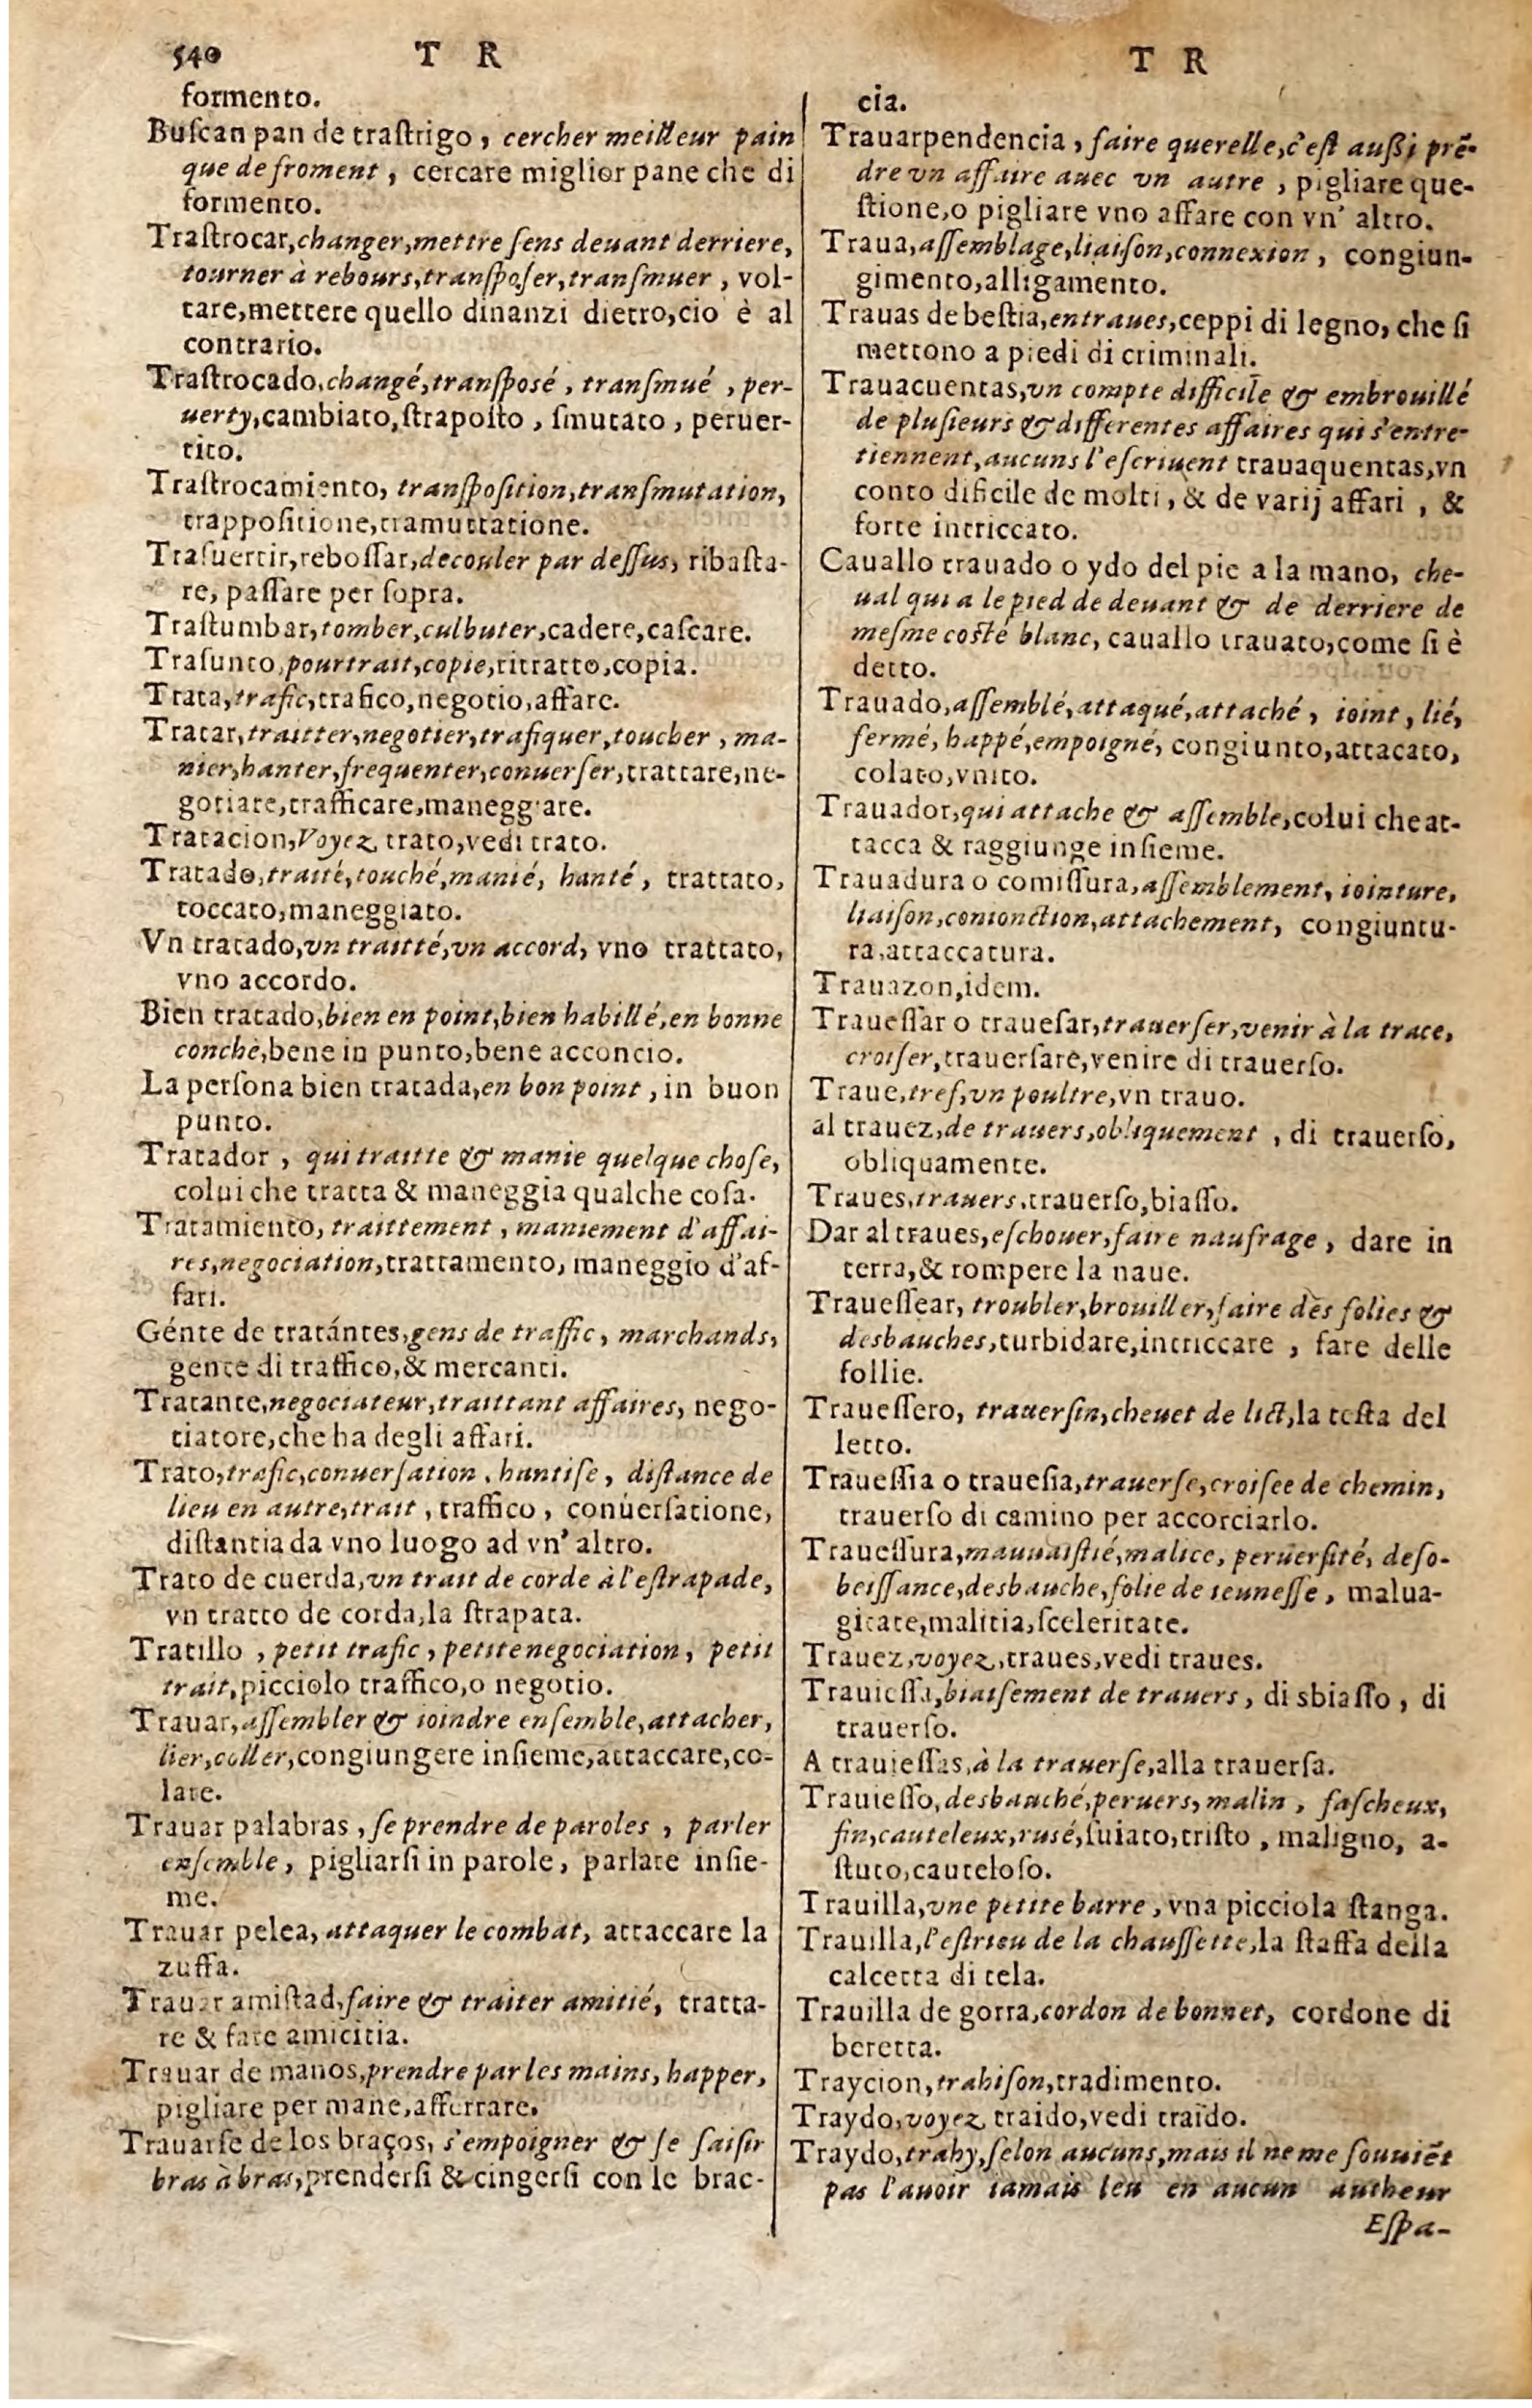 540 T R
formento.
Buſcan pan de traſtrigo, cercher meilleur pain
que de froment, cercare miglior pane che di
formento.
Traſtrocar, changer, mettre ſens deuant derriere,
tourner à rebours, tranſpoſer, tranſmuer, vol-
tare, mettere quello dinanzi dietro, cio è al
contrario.
Traſtrocado, changé, tranſposé, tranſmué, per-
uerty, cambiato, ſtrapoſto, ſmutato, peruer-
tito.
Traſtrocamiento, tranſpoſition, tranſmutation,
trappoſitione, tramuttatione.
Traſuertir, reboſſar, decouler par deſſus, ribaſta-
re, paſſare per ſopra.
Traſtumbar, tomber, culbuter, cadere, caſcare.
Traſunto, pourtrait, copie, ritratto, copia.
Trata, trafic, trafico, negotio, affare.
Tratar, traitter, negotier, trafiquer, toucher, ma-
nier, hanter, frequenter, conuerſer, trattare, ne-
gotiare, trafficare, maneggiare.
Tratacion, Voyez trato, vedi trato.
Tratado, traité, touché, manié, hanté, trattato,
toccato, maneggiato.
Vn tratado, vn traitté, vn accord, vno trattato,
vno accordo.
Bien tratado, bien en point, bien habillé, en bonne
conche, bene in punto, bene acconcio.
La perſona bien tratada, en bon point, in buon
punto.
Tratador, qui traitte & manie quelque choſe,
colui che tratta & maneggia qualche coſa.
Tratamiento, traittement, maniement d'affai-
res, negociation, trattamento, maneggio d'af-
fari.
Génte de tratántes, gens de traffic, marchands,
gente di traffico, & mercanti.
Tratante, negociateur, traittant affaires, nego-
tiatore, che ha degli affari.
Trato, trafic, conuerſation, hantiſe, diſtance de
lieu en autre, trait, traffico, conuerſatione,
diſtantia da vno luogo ad vn' altro.
Trato de cuerda, vn trait de corde à l'eſtrapade,
vn tratto de corda, la ſtrapata.
Tratillo, petit trafic, petite negociation, petit
trait, picciolo traffico, o negotio.
Trauar, aſſembler & ioindre enſemble, attacher,
lier, coller, congiungere inſieme, attaccare, co-
lare.
Trauar palabras, ſe prendre de paroles, parler
enſemble, pigliarſi in parole, parlare inſie-
me.
Trauar pelea, attaquer le combat, attaccare la
zuffa.
Trauar amiſtad, faire & traiter amitié, tratta-
re & fare amicitia.
Trauar de manos, prendre par les mains, happer,
pigliare per mane, afferrare.
Trauarſe de los braços, s'empoigner & ſe ſaiſir
bras à bras, prenderſi & cingerſi con le brac-
T R
cia.
Trauarpendencia, faire querelle, c'eſt auſſi prẽ-
dre vn affaire auec vn autre, pigliare que-
ſtione, o pigliare vno affare con vn' altro.
Traua, aſſemblage, liaiſon, connexion, congiun-
gimento, alligamento.
Trauas de beſtia, entraues, ceppi di legno, che ſi
mettono a piedi di criminali.
Trauacuentas, vn compte difficile & embrouillé
de pluſieurs & differentes affaires qui s'entre-
tiennent, aucuns l'eſcriuent trauaquentas, vn
conto dificile de molti, & de varij affari, &
forte intriccato.
Cauallo trauado o ydo del pie a la mano, che-
ual qui a le pied de deuant & de derriere de
meſme coſté blanc, cauallo trauato, come ſi è
detto.
Trauado, aſſemblé, attaqué, attaché, ioint, lié,
fermé, happé, empoigné, congiunto, attacato,
colato, vnito.
Trauador, qui attache & aſſemble, colui che at-
tacca & raggiunge inſieme.
Trauadura o comiſſura, aſſemblement, iointure,
liaiſon, conionction, attachement, congiuntu-
ra, attaccatura.
Trauazon, idem.
Traueſſar o traueſar, trauerſer, venir à la trace,
croiſer, trauerſare, venire di trauerſo.
Traue, treſ, vn poultre, vn trauo.
al trauez, de trauers, obliquement, di trauerſo,
obliquamente.
Traues, trauers, trauerſo, biaſſo.
Dar al traues, eſchouer, faire naufrage, dare in
terra, & rompere la naue.
Traueſſear, troubler, brouiller, faire des folies &
desbauches, turbidare, intriccare, fare delle
follie.
Traueſſero, trauerſin, cheuet de lict, la teſta del
letto.
Traueſſia o traueſia, trauerſe, croiſee de chemin,
trauerſo di camino per accorciarlo.
Traueſſura, mauuaiſtié, malice, peruerſité, deſo-
beiſſance, desbauche, folie de ieuneſſe, malua-
gitate, malitia, ſceleritate.
Trauez, voyez, traues, vedi traues.
Trauieſſa, biaiſement de trauers, di sbiaſſo, di
trauerſo.
A trauieſſas, à la trauerſe, alla trauerſa.
Trauieſſo, desbauché, peruers, malin, faſcheux,
fin, cauteleux, ruſé, ſuiato, triſto, maligno, a-
ſtuto, cauteloſo.
Trauilla, vne petite barre, vna picciola ſtanga.
Trauilla, l'eſtrieu de la chauſſette, la ſtaffa della
calcetta di tela.
Trauilla de gorra, cordon de bonnet, cordone di
beretta.
Traycion, trahiſon, tradimento.
Traydo, voyez traido, vedi traido.
Traydo, trahy, ſelon aucuns, mais il ne me ſouuiẽt
pas l'auoir iamais leu en aucun autheur
Eſpa-